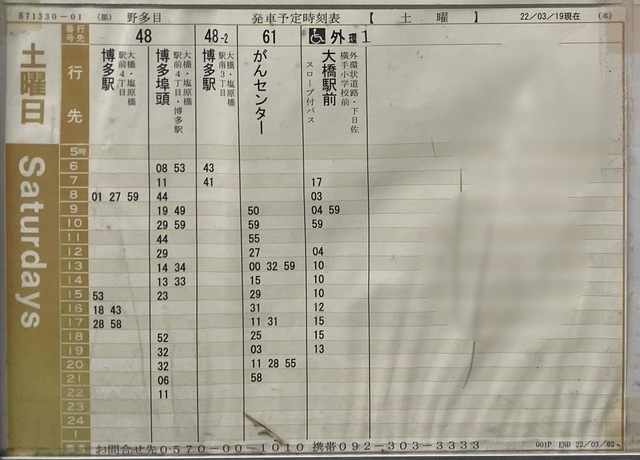 571330-01 (那) 野多目 発車予定時刻表 【 土 曜 】 22/03/19現在 (木)
行先番号 48 48-2 61 外環1
土曜日 Saturdays
行先
博多駅 大橋・塩原橋 駅前4丁目
博多埠頭 大橋・塩原橋 駅前4丁目・博多駅
博多駅 大橋・塩原橋 駅南3丁目
がんセンター
大橋駅前 外環状道路・下日佐 横手小学校前 スロープ付バス
5時
6 08 53 43
7 11 41 17
8 01 27 59 44 03
9 19 49 50 04 59
10 29 59 59 59
11 44 55
12 29 27 04
13 14 34 00 32 59 10
14 13 33 15 10
15 53 23 29 10
16 18 43 31 12
17 28 58 11 31 15
18 52 25 15
19 32 03 13
20 32 11 28 55
21 06 58
22 11
23
24
1
お問合せ先0570-00-1010 携帯092-303-3333
001P END 22/03/02